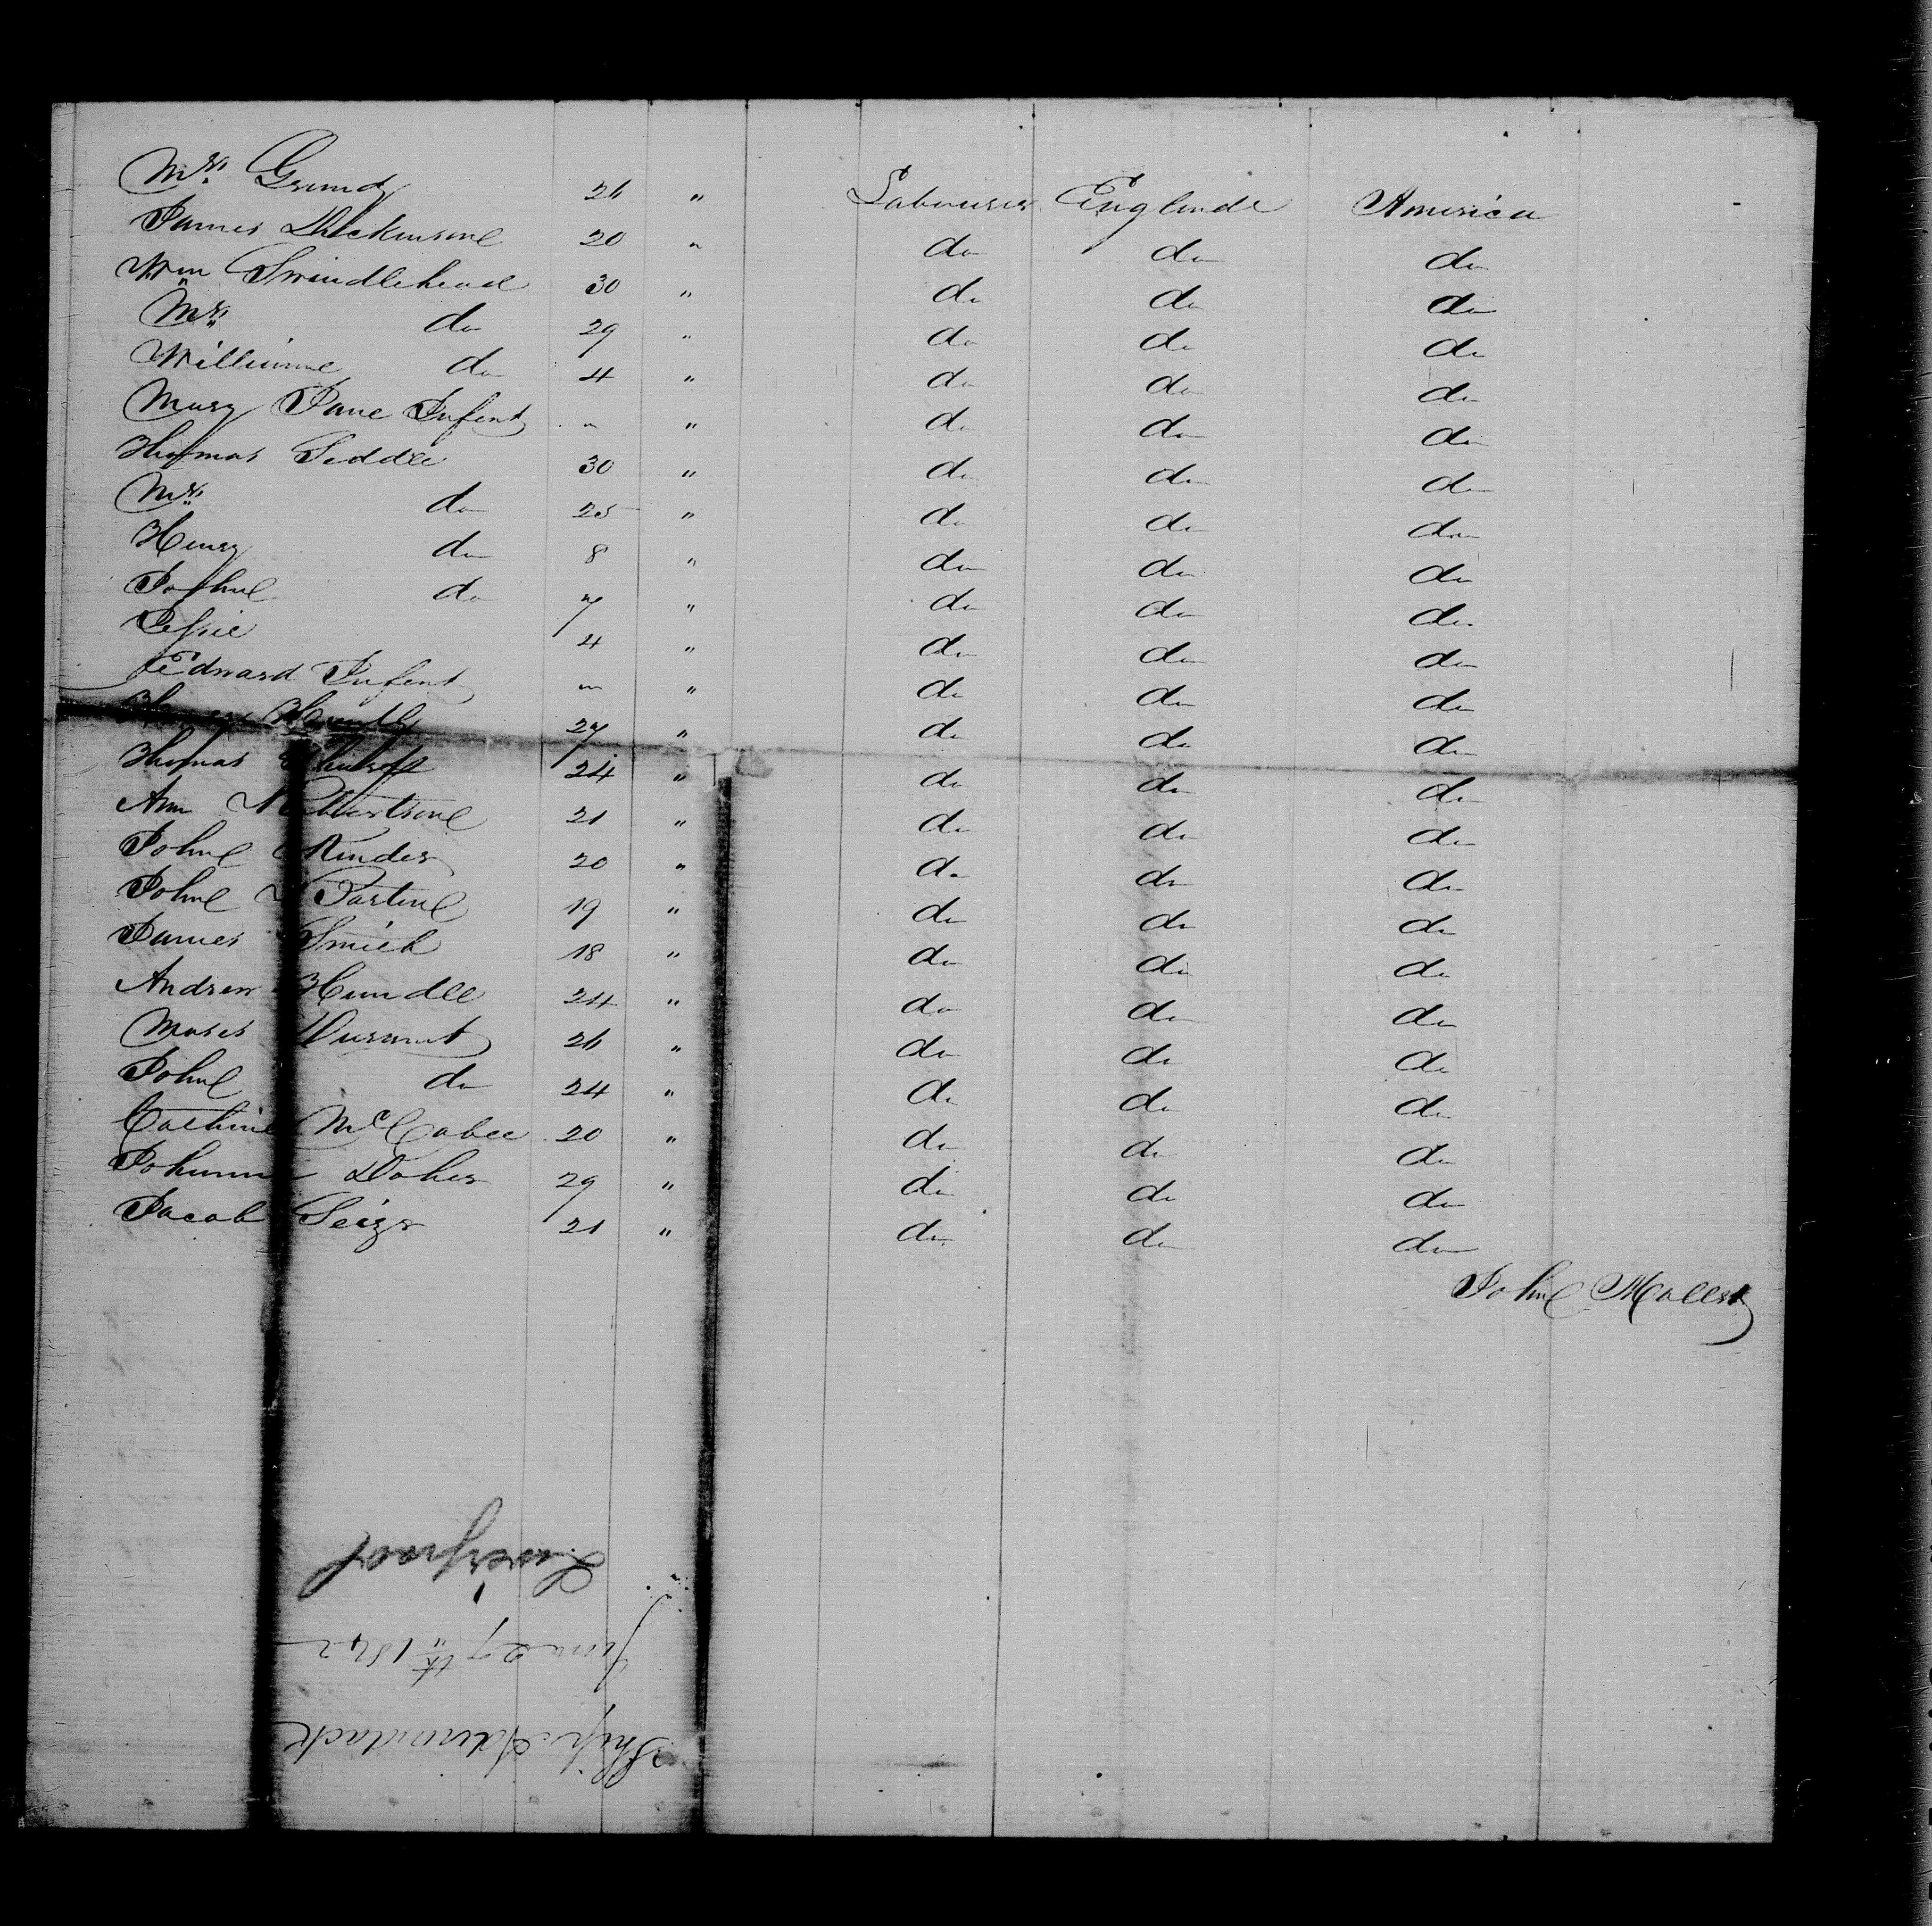 Mrs. Grundy 26 " Labourer England America
James Dickinson 20 " do do do
Wm Swindlehead 30 " do do do
Mrs do 29 " do do do
William do 4 " do do do
Mary Jane Infant " " do do do
Thomas Seddle 30 " do do do
Mrs do 25 " do do do
Henry do 8 " do do do
John do 7 " do do do
4 " do do do
Edward Infant " " do do do
27 " do do do
Thomas 24 " do do do
Ann Robertson 21 " do do do
John Kinder 20 " do do do
John 19 " do do do
James Smith 18 " do do do
Andrew Hundle 24 " do do do
Moses Durant 26 " do do do
John do 24 " do do do
Cathine McCabee 20 " do do do
Doher 29 " do do do
Jacob Seizr 21 " do do do
John
Ship Adirondack
June 27th 1842
Liverpool